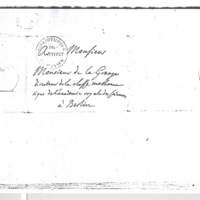 A Monsieur
Monsieur de la Grange
directeur de la classe mathema
tique de l'academie royale des sciences
à Berlin